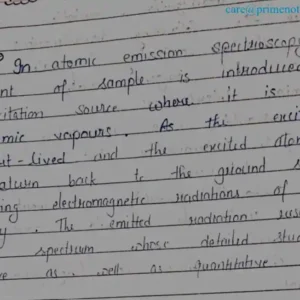 care@primenot
In atomic emission spectroscop
nt of sample is introduced
citation source where it is
mic vapours. As the exci
rt-lived and the excited ato
return back to the ground s
ing electromagnetic radiations of
y. The emitted radiation res
spectrum whose detailed stud
ve as well as quantitative